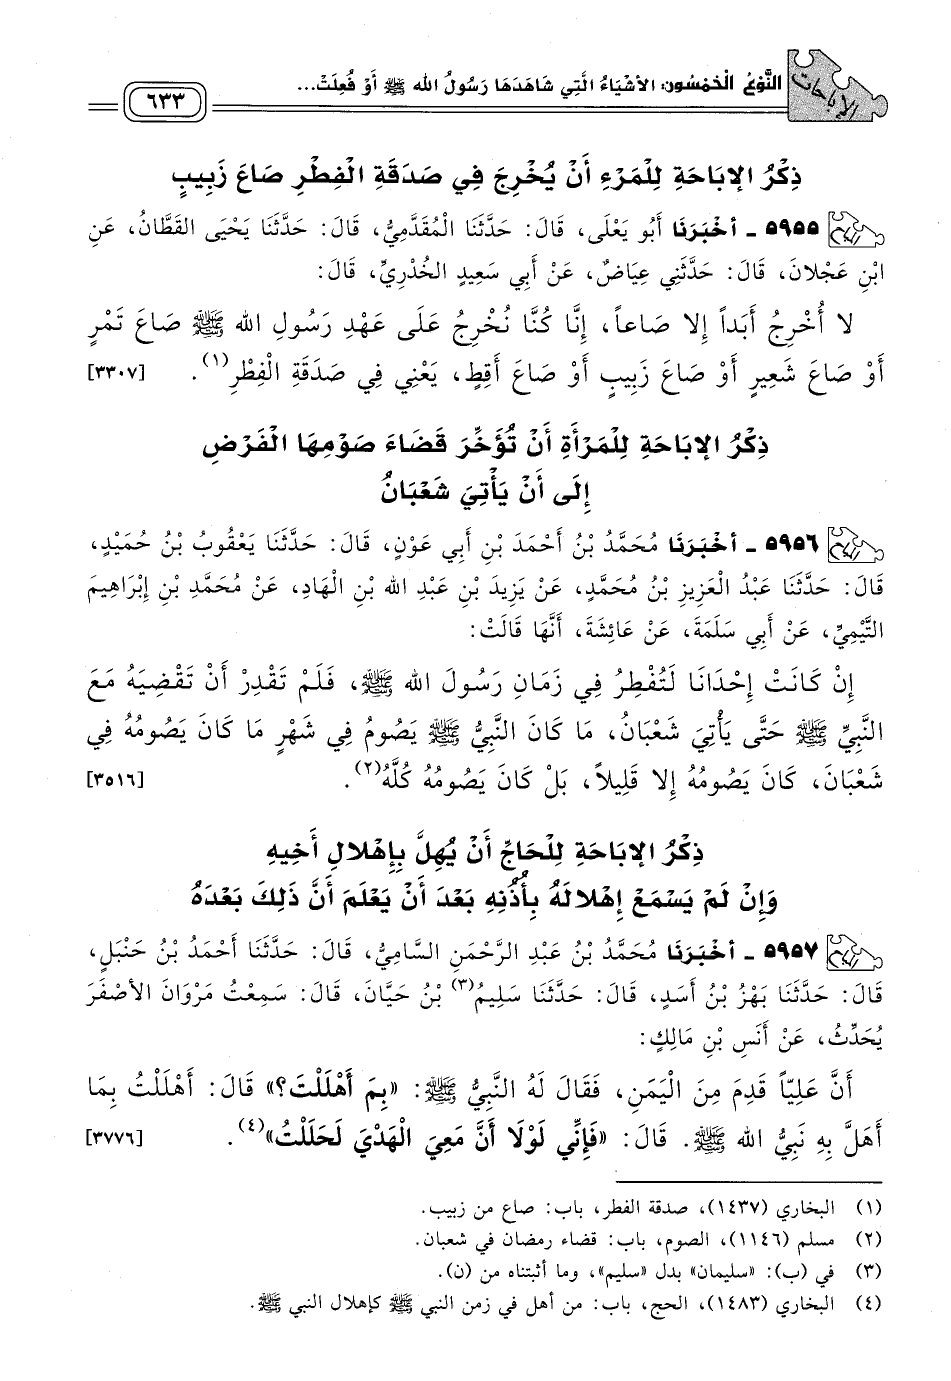 الإباحات
النَّوْعُ الْخَمْسُون: الأشْيَاءُ الَّتِي شَاهَدَهَا رَسُولُ الله ﷺ أَوْ فُعِلَتْ...
٦٣٣
ذِكْرُ الإبَاحَةِ لِلْمَرْءِ أَنْ يُخْرِجَ فِي صَدَقَةِ الْفِطْرِ صَاعَ زَبِيبٍ
٥٩٥٥ - أخْبَرَنَا أَبُو يَعْلَى، قَالَ: حَدَّثَنَا الْمُقَدَّمِيُّ، قَالَ: حَدَّثَنَا يَحْيَى القَطَّانُ، عَنِ
ابْنِ عَجْلانَ، قَالَ: حَدَّثَنِي عِيَاضٌ، عَنْ أَبِي سَعِيدٍ الخُدْرِيِّ، قَالَ:
لا أُخْرِجُ أَبَداً إلا صَاعاً، إِنَّا كُنَّا نُخْرِجُ عَلَى عَهْدِ رَسُولِ الله ﷺ صَاعَ تَمْرٍ
أَوْ صَاعَ شَعِيرٍ أَوْ صَاعَ زَبِيبٍ أَوْ صَاعَ أَقِطٍ، يَعْنِي فِي صَدَقَةِ الْفِطْرِ(١). [٣٣٠٧]
ذِكْرُ الإبَاحَةِ لِلْمَرْأَةِ أَنْ تُؤَخِّرَ قَضَاءَ صَوْمِهَا الْفَرْضِ
إِلَى أَنْ يَأْتِيَ شَعْبَانُ
٥٩٥٦ - أخْبَرَنَا مُحَمَّدُ بْنُ أَحْمَدَ بْنِ أَبِي عَوْنٍ، قَالَ: حَدَّثَنَا يَعْقُوبُ بْنُ حُمَيْدٍ،
قَالَ: حَدَّثَنَا عَبْدُ الْعَزِيزِ بْنُ مُحَمَّدٍ، عَنْ يَزِيدَ بْنِ عَبْدِ الله بْنِ الْهَادِ، عَنْ مُحَمَّدِ بْنِ إِبْرَاهِيمَ
التَّيْمِيِّ، عَنْ أَبِي سَلَمَةَ، عَنْ عَائِشَةَ، أَنَّهَا قَالَتْ:
إِنْ كَانَتْ إِحْدَانَا لَتُفْطِرُ فِي زَمَانِ رَسُولَ الله ﷺ، فَلَمْ تَقْدِرْ أَنْ تَقْضِيَهُ مَعَ
النَّبِيِّ ﷺ حَتَّى يَأْتِيَ شَعْبَانُ، مَا كَانَ النَّبِيُّ ﷺ يَصُومُ فِي شَهْرٍ مَا كَانَ يَصُومُهُ فِي
شَعْبَانَ، كَانَ يَصُومُهُ إلا قَلِيلاً، بَلْ كَانَ يَصُومُهُ كُلَّهُ(٢). [٣٥١٦]
ذِكْرُ الإبَاحَةِ لِلْحَاجِّ أَنْ يُهِلَّ بِإِهْلالِ أَخِيهِ
وَإِنْ لَمْ يَسْمَعْ إِهْلالَهُ بِأُذُنِهِ بَعْدَ أَنْ يَعْلَمَ أَنَّ ذَلِكَ بَعْدَهُ
٥٩٥٧ - أخْبَرَنَا مُحَمَّدُ بْنُ عَبْدِ الرَّحْمَنِ السَّامِيُّ، قَالَ: حَدَّثَنَا أَحْمَدُ بْنُ حَنْبَلٍ،
قَالَ: حَدَّثَنَا بَهْزُ بْنُ أَسَدٍ، قَالَ: حَدَّثَنَا سَلِيمُ(٣) بْنُ حَيَّانَ، قَالَ: سَمِعْتُ مَرْوَانَ الأصْفَرَ
يُحَدِّثُ، عَنْ أَنَسِ بْنِ مَالِكٍ:
أَنَّ عَلِيّاً قَدِمَ مِنَ الْيَمَنِ، فَقَالَ لَهُ النَّبِيُّ ﷺ: «بِمَ أَهْلَلْتَ؟» قَالَ: أَهْلَلْتُ بِمَا
أَهَلَّ بِهِ نَبِيُّ الله ﷺ. قَالَ: «فَإِنِّي لَوْلَا أَنَّ مَعِيَ الْهَدْيَ لَحَلَلْتُ»(٤). [٣٧٧٦]
(١) البخاري (١٤٣٧)، صدقة الفطر، باب: صاع من زبيب.
(٢) مسلم (١١٤٦)، الصوم، باب: قضاء رمضان في شعبان.
(٣) في (ب): «سليمان» بدل «سليم»، وما أثبتناه من (ن).
(٤) البخاري (١٤٨٣)، الحج، باب: من أهل في زمن النبي ﷺ كإهلال النبي ﷺ.